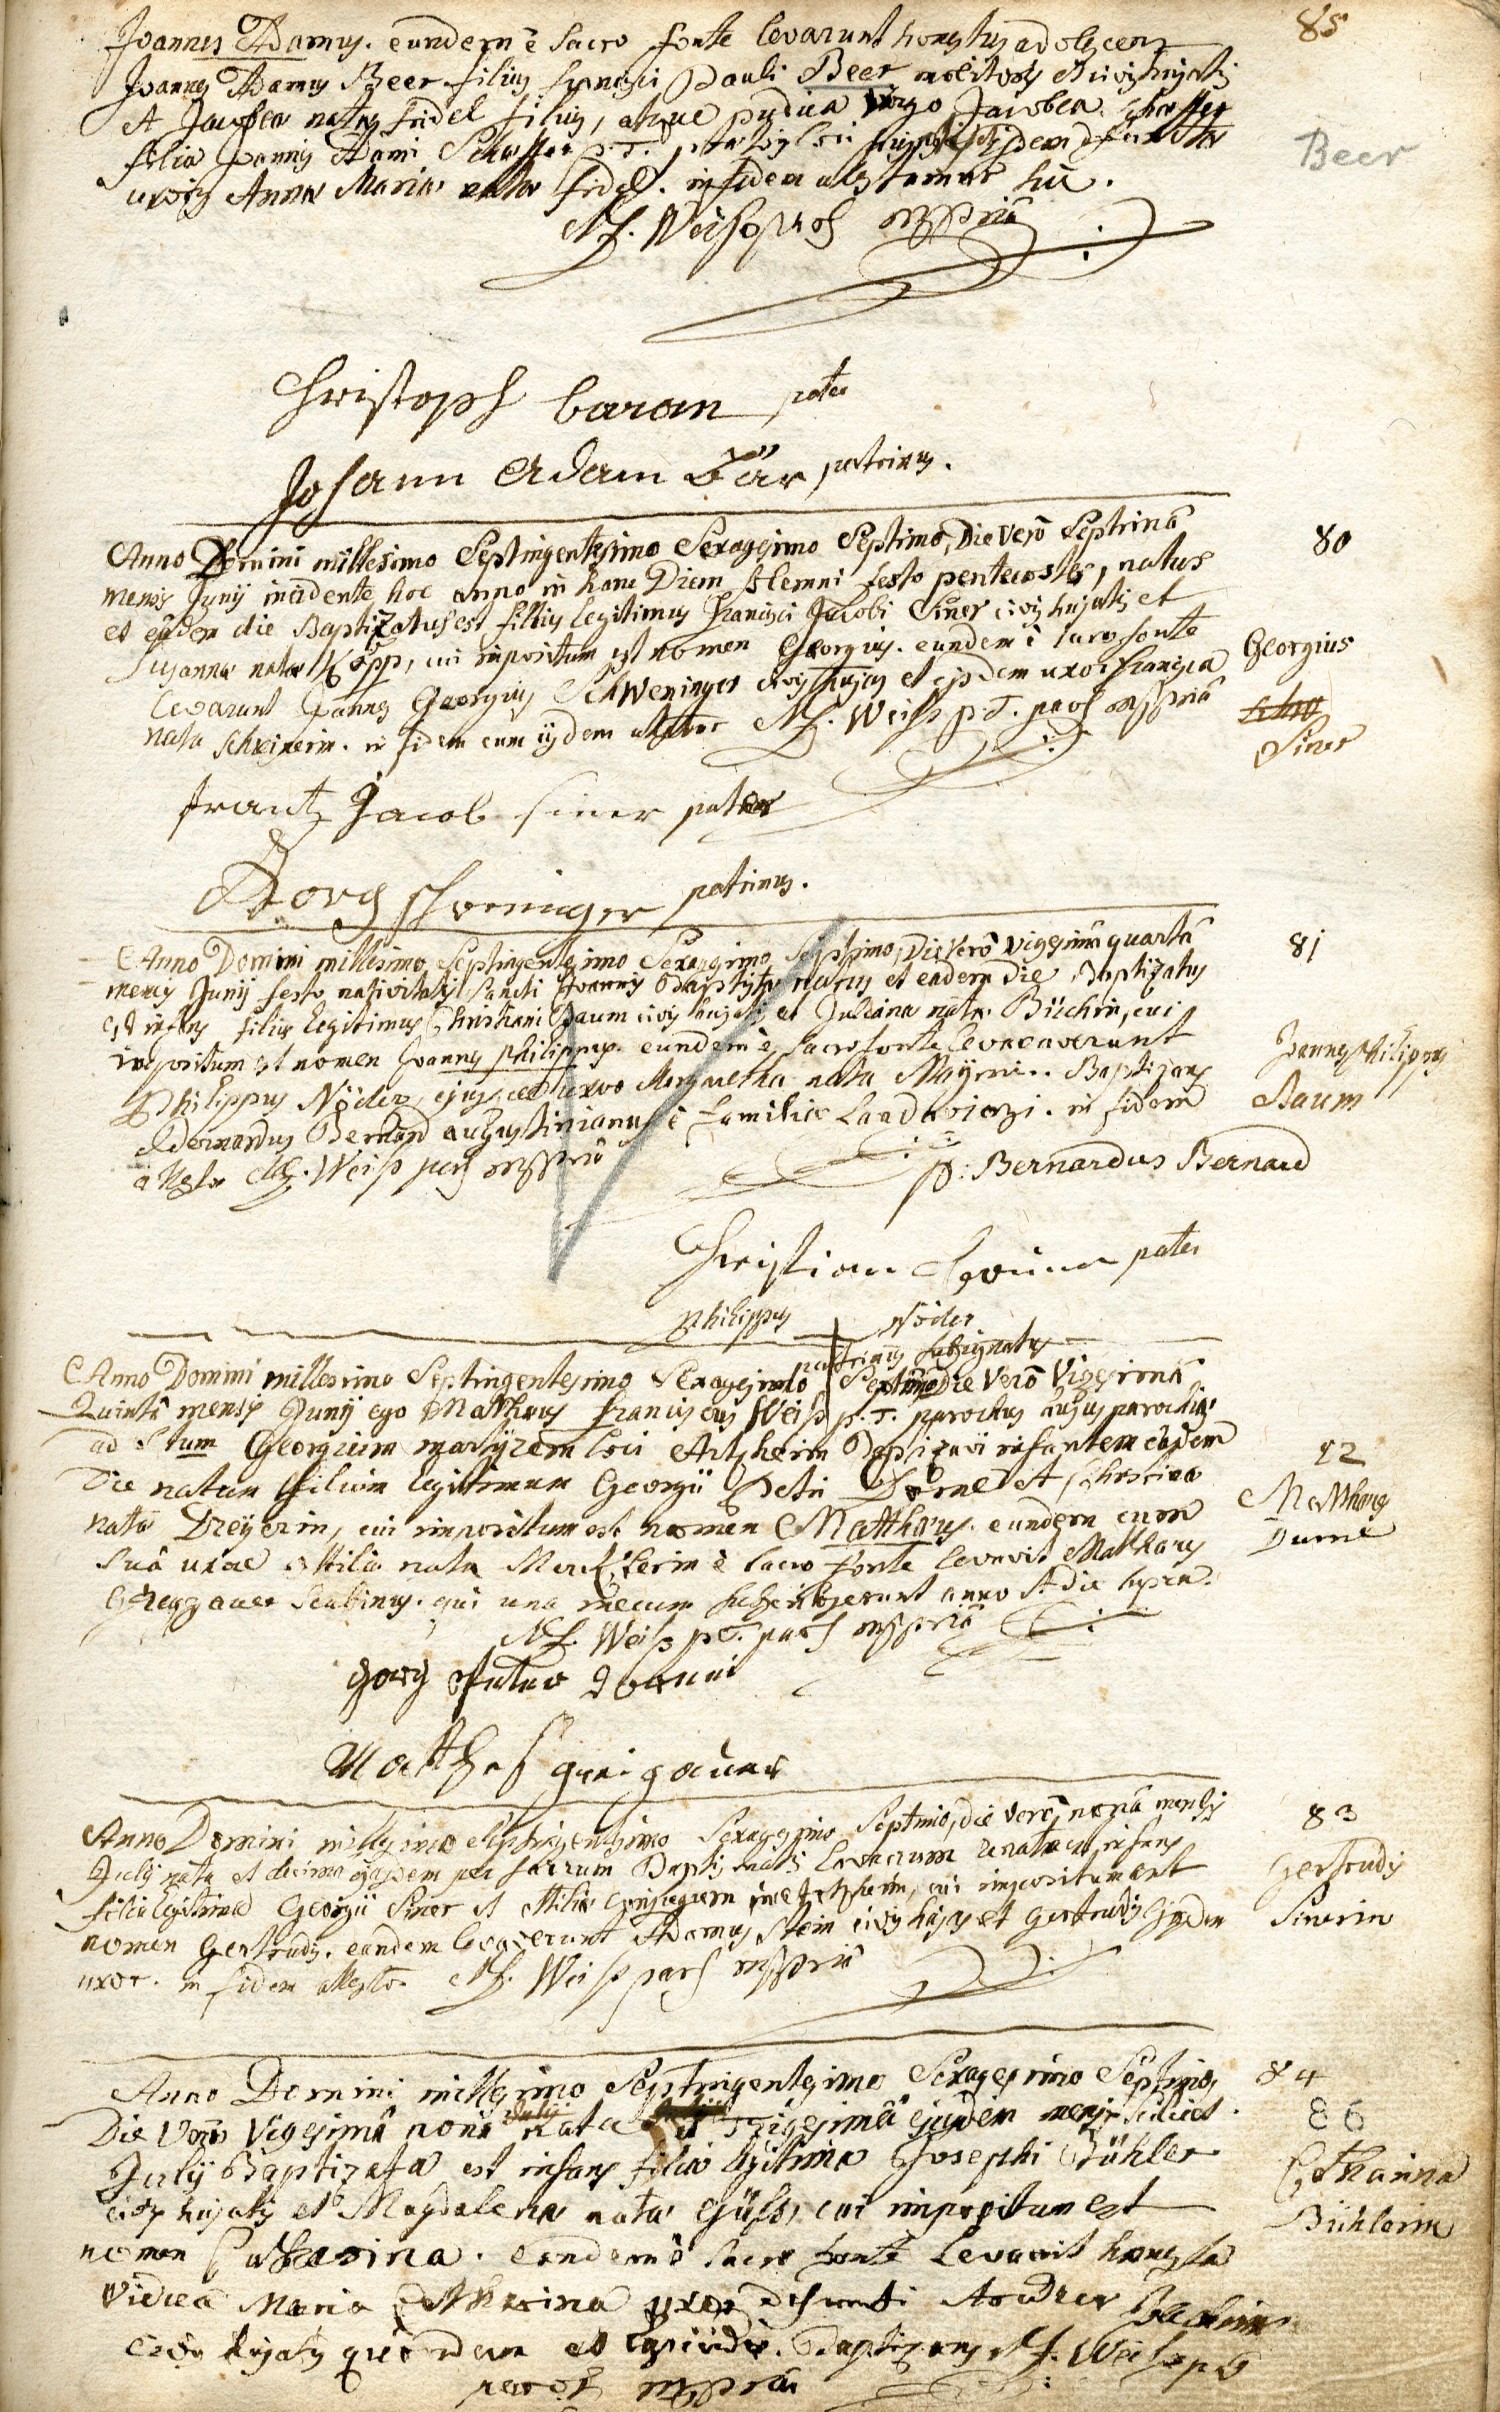 85
Joannes Adamus. eundem è sacro fonte levarunt honestus adolescens
Joannes Adamus Beer filius Pauli Beer molitoris et civis hujatis
et Jacobea nata Fridel filius, atque pudica virgo Jacobea
filia Joannis Adami p.T.
uxoris Anna Maria nata Fridel. in fidem hic.
Beer
M.F. Weis mppria
Christoph baron pater
Johann Adam Bär patrinus.
80
Anno Domini millesimo Septingentesimo Sexagesimo Septimo, Die Verò Septimâ
mensis Junÿ incidente hoc anno in hanc Diem solemni festo pentecostes, natus
et eâdem die Baptizatus est filius legitimus Francisci Jacobi Siner civis hujatis et
Susanna nata Köpp, cui impositum est nomen Georgius. eundem è sacro fonte
levarunt Joannes Georgius Schweninger civis hujas et ejusdem uxor Francisca
nata Schreinerin. in fidem cum ijsdem attestor M.F. Weiß p.T. paroch mppriâ
Georgius
Siner
Frantz Jacob siner pater
Georg schweninger patrinus.
81
Anno Domini millesimo Septingentesimo Sexagesimo Septimo, Die Verò Vigesimâ quartâ
mensis Junÿ festo nativitatis sancti Joannis Baptistæ natus et eadem die Baptizatus
est infans filius legitimus Christiani Baum civis hujatis et Juliana nata Büchin, cui
impositum est nomen Joannes philippus. eundem è sacro fonte levaverunt
Philippus Nöder, ejusque uxor Margaretha nata Maÿerin. Baptizans
Bernardus Bernard augustinianus è familiâ Landaviensi. in fidem
attestor M.F. Weiß paroch mppriâ
Joannes Philippus
Baum
P: Bernardus Bernard
Christian Baum pater
Philippus + Nöder
patrinus subsignatus
Anno Domini millesimo Septingentesimo Sexagesimo Septimo Die Verò Vigesimâ
Quintâ mensis Junÿ ego Matthæus Franciscus Weiß p.T. parochus hujus parochiæ
ad Stum Georgium martÿrem loci Artzheim Baptizavi infantem eâdem
Die natum filium legitimum Georgii Petri Dorne et Christina
nata Dreÿerin, cui impositum est nomen Matthæus. eundem cum
suâ uxore Ottilia nata è sacro fonte levavit Matthæus
Greiggauer Scabinus. qui una mecum subscripserunt anno et die supra.
82
Matthæus
Durne
M.F. Weiß p.T. paroch mppriâ
Georg Petter
Matthes greigauer
83
Anno Domini millesimo Septingentesimo Sexagesimo Septimo, die Verò nonâ mensis
Julÿ nata et decima ejusdem per sacrum Baptismatis lavacrum renata est infans
filia legitima Georgii Siner et Ottiliæ Conjugum in Artzheim, cui impositum est
nomen Gertrudis. eandem levaverunt Adamus Stein civis hujas et Gertrudis Ejusdem
uxor. in fidem attestor M.F. Weiß paroch mppriâ
Gertrudis
Sinerin
84
86
Anno Domini millesimo Septingentesimo Sexagesimo Septimo,
Die Verò Vigesimâ nonâ Julÿ nata et Trigesimâ ejusdem mensis scilicet
Julÿ Baptizata est infans filia legitima Josephi Bühler
civis hujatis et Magdalena nata cui impositum est
nomen Catharina. Eandem è sacro fonte levavit honesta
vidua Maria Catharina uxor defuncti Andreæ
civis hujatis quondam et Baptizans M.F. Weiß p.T.
paroch mppriâ
Catharina
Bühlerin